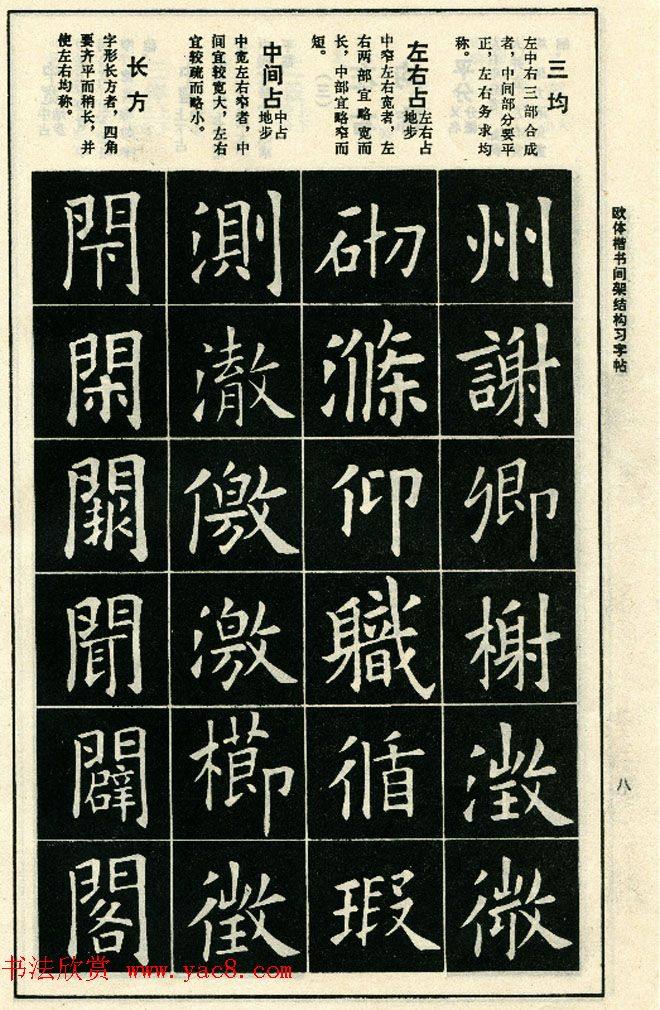 欧体楷书间架结构习字帖
八
三均
左中右三部合成
者，中间部分要平
正，左右务求均
称。
左右占
左右占
地步
中窄左右宽者，左
右两部宜略宽而
长，中部宜略窄而
短。
中间占
中占
地步
中宽左右窄者，中
间宜较宽大，左右
宜较疏而略小。
长方
字形长方者，四角
要齐平而稍长，并
使左右均称。
州謝卿榭澂微
砌滌仰軄循瑕
測澈儌激櫛徵
閇閑聞闢閣
书法欣赏 www.yac8.com